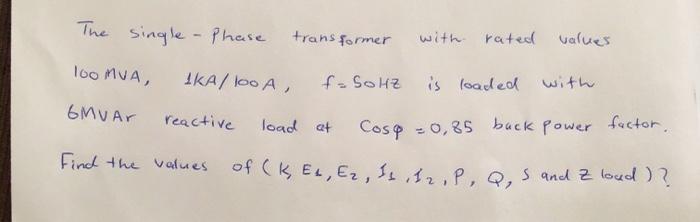 The single-phase transformer with rated values
100 MVA, 1kA/100A, f=50HZ is loaded with
6MVAr reactive load at Cosφ=0,85 back power factor.
Find the values of (K, E1, E2, I1, I2, P, Q, S and Z load)?